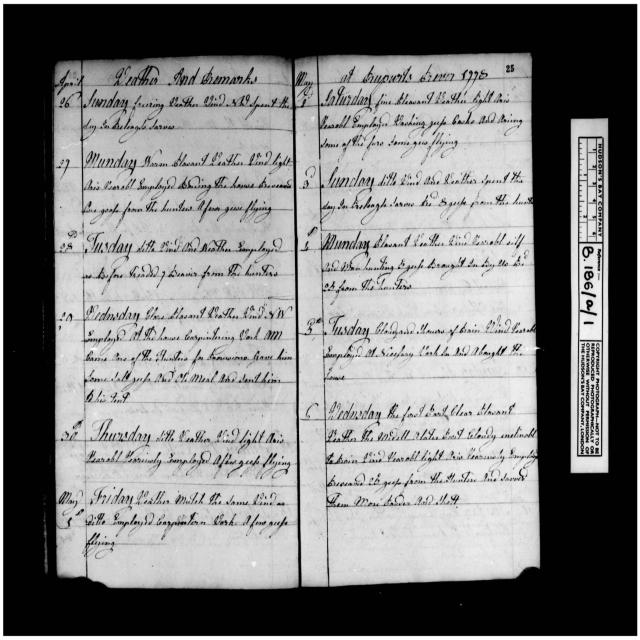 April
Weather And Remarks
26 Sunday freezing Weather Wind N W Spent the
day In Releagh Sarves
27 Munday Warm Pleasant Weather Wind light
Airs Varabl Employed the house Receaved
One goose from the hunters A few geese flying
28 Tusday ditto Wind And Weather Employed
as Before Traded 7 Beaver from the hunters
29 Wednsday Clear Pleasant Weather Wind N W
Employed At the house Carpintering Work AM
Came One of the Hunters for Gave him
Some Salt geese And Ot Meal And Sent him
to his Tent
30th Thursday ditto Weather Wind light Airs
Varabl Variously Employed A few geese flying
May
1st Friday Weather Much The Same Wind as
ditto Employed Carpintern Work A few geese
flying
25
May at Ruperts River 1778
Saturday fine Pleasant Weather light Airs
Varabl Employed geese Casks And Airing
Some of the furs Some geese flying
3 Sunday ditto Wind And Weather Spent the
day In Releagh Sarves geese from the hunters
4 Munday Pleasant Weather Wind Varabl self
And Man hunting geese Brought In
25 from the hunters
5th Tusday Cloudy and Shours of Rain Wind Varabl
Employed At Necesary Work In And A bought the
house
6 Wednsday the first Part Clear Pleasant
Weather the Midell & later Part Cloudy
to Rain Wind Varabl light Airs Variously Employ
Receaved 25 geese from the Hunters And Sarved
Them Powder And Shott
HUDSON'S BAY COMPANY
Reference
B.186/a/1
COPYRIGHT PHOTOGRAPH—NOT TO BE
REPRODUCED PHOTOGRAPHICALLY OR
OTHERWISE WITHOUT PERMISSION OF
THE HUDSON'S BAY COMPANY